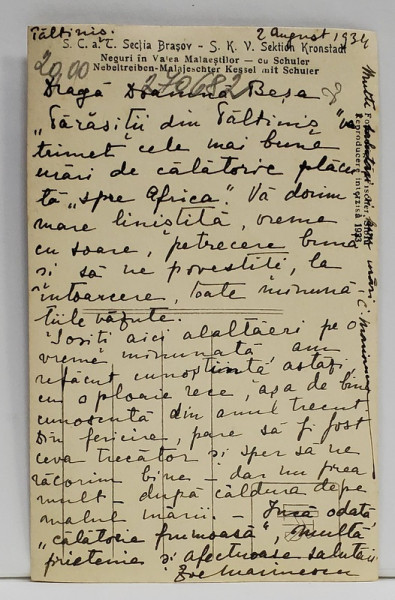 Păltiniș. 2 August 1934
S. C. a. T. Secția Brașov – S. K. V. Sektion Kronstadt
Neguri in Valea Malaeștilor – cu Schuler
Nebeltreiben-Malajeschter Kessel mit Schuler
20,00
270682
Dragă Doamnă Beșa
„Părăsiții din Păltiniș" vă
trimet cele mai bune
urări de călătorie plăcu
tă „spre Africa". Vă dorim
mare liniștită, vreme
cu soare, petrecere bună
și să ne povestiți, la
întoarcere, toate minuna
țiile văzute.
Sosiți aici alaltăeri pe o
vreme minunată, am
refăcut cunoștință astăzi
cu o ploaie rece, așa de bine
cunoscută din anul trecut.
Din fericire, pare să fi fost
ceva trecător și sper să ne
răcorim bine – dar nu prea
mult – după căldura depe
malul mării. – Încă odată
„călătorie frumoasă", multă
prietenie și afectuoase salutări
Zoe Marinescu
Multe
urări
Reproducere interzisă 1933